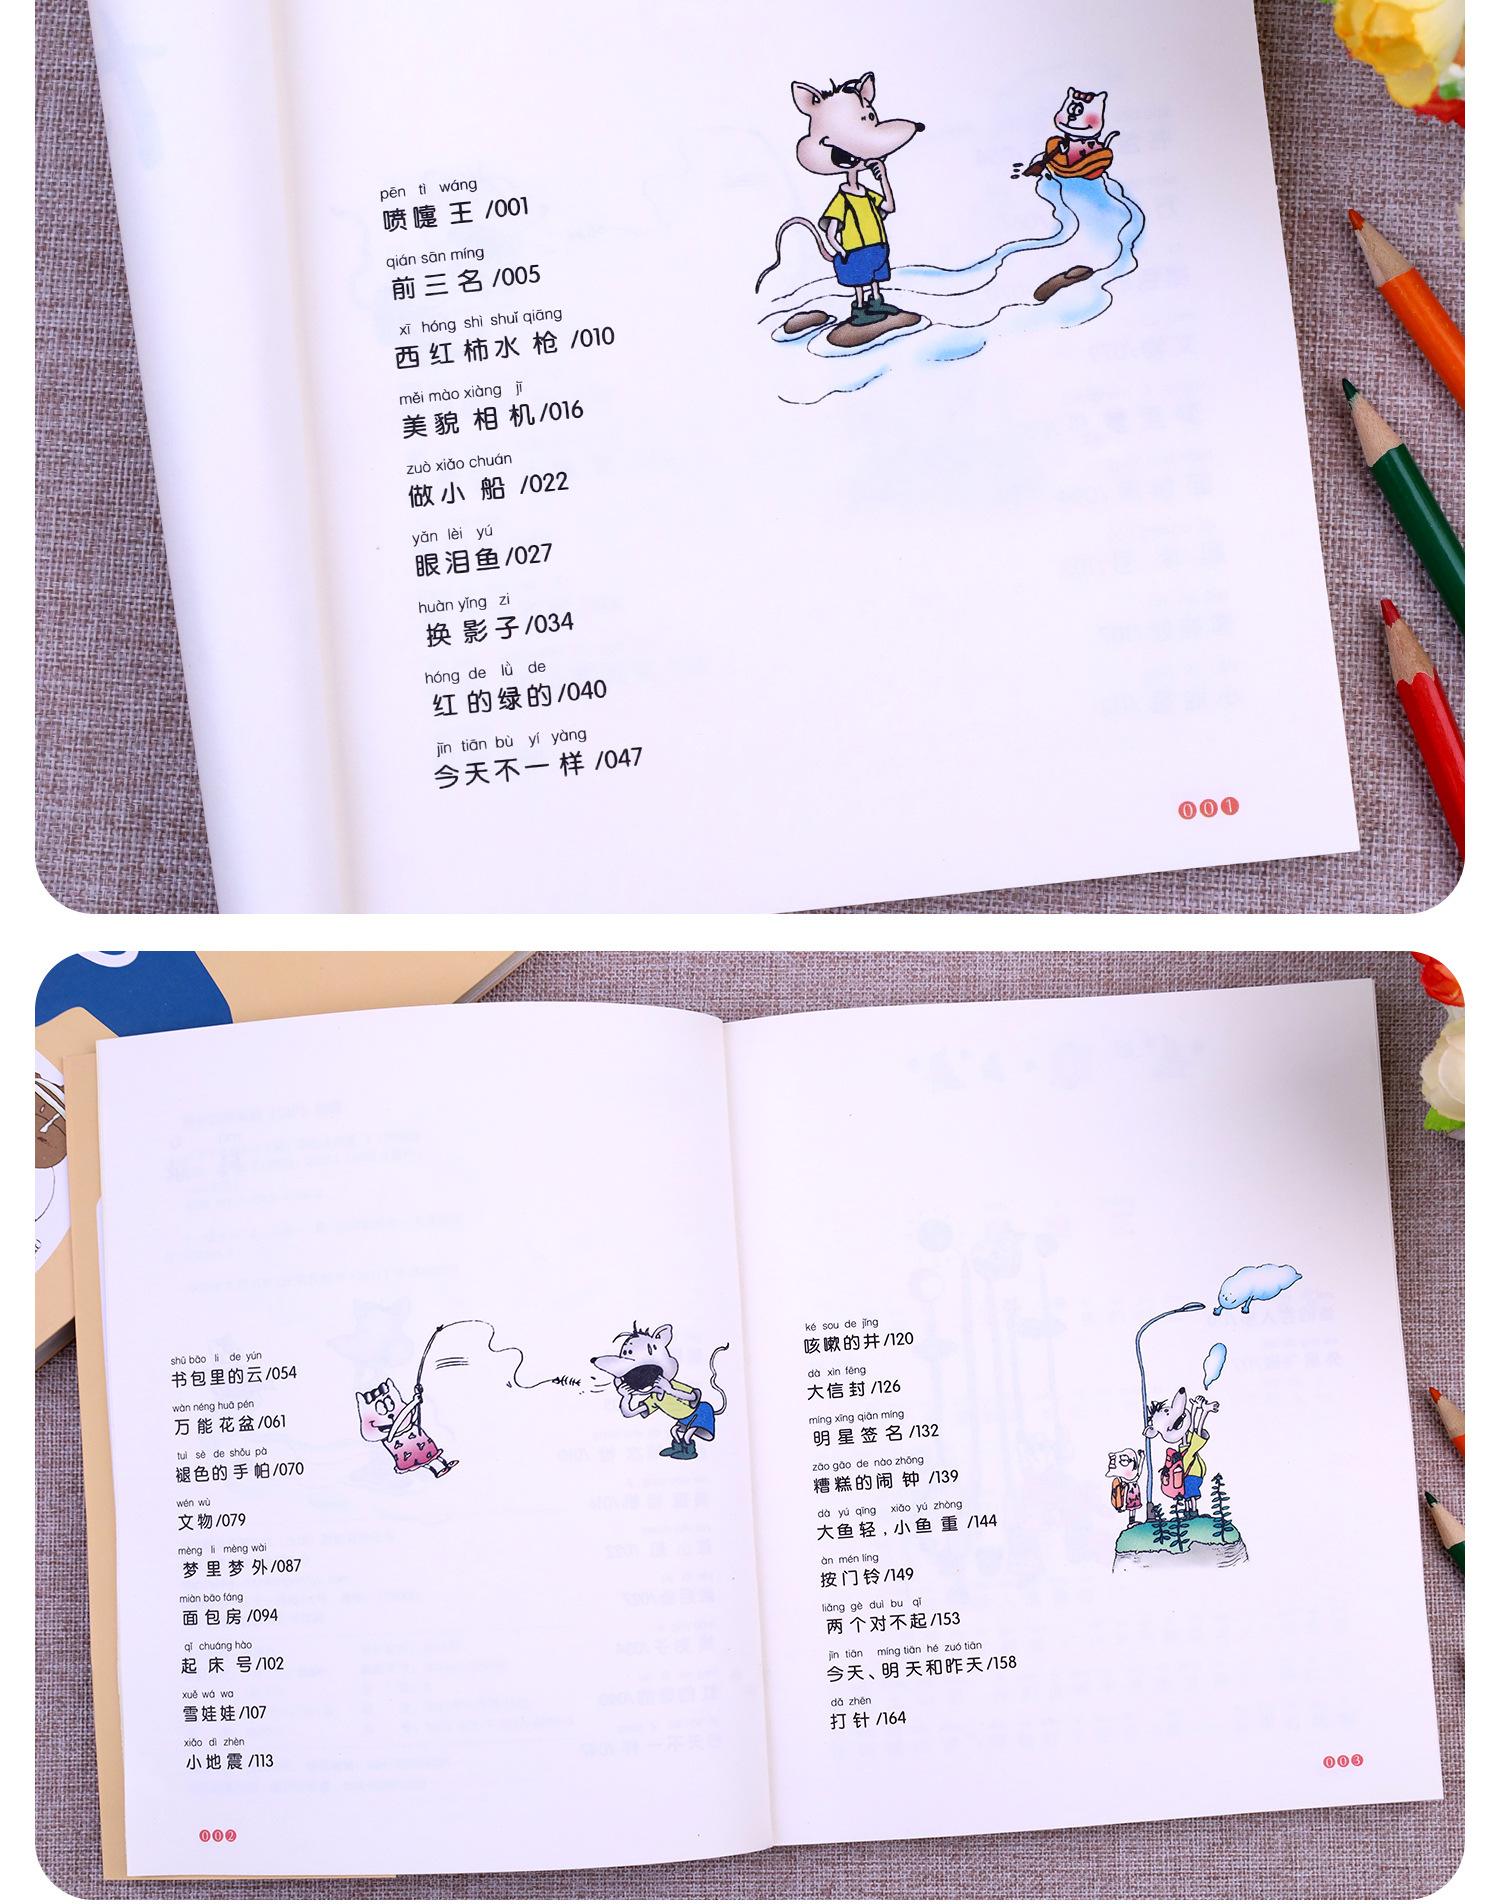 pēn tì wáng
喷嚏王/001
qián sān míng
前三名/005
xī hóng shì shuǐ qiāng
西红柿水枪/010
měi mào xiàng jī
美貌相机/016
zuò xiǎo chuán
做小船/022
yǎn lèi yú
眼泪鱼/027
huàn yǐng zi
换影子/034
hóng de lǜ de
红的绿的/040
jīn tiān bù yí yàng
今天不一样/047
001
shū bāo li de yún
书包里的云/054
wàn néng huā pén
万能花盆/061
tuì sè de shǒu pà
褪色的手帕/070
wén wù
文物/079
mèng li mèng wài
梦里梦外/087
miàn bāo fáng
面包房/094
qǐ chuáng hào
起床号/102
xuě wá wa
雪娃娃/107
xiǎo dì zhèn
小地震/113
002
ké sou de jǐng
咳嗽的井/120
dà xìn fēng
大信封/126
míng xīng qiān míng
明星签名/132
zāo gāo de nào zhōng
糟糕的闹钟/139
dà yú qīng xiǎo yú zhòng
大鱼轻,小鱼重/144
àn mén líng
按门铃/149
liǎng gè duì bu qǐ
两个对不起/153
jīn tiān míng tiān hé zuó tiān
今天、明天和昨天/158
dǎ zhēn
打针/164
003